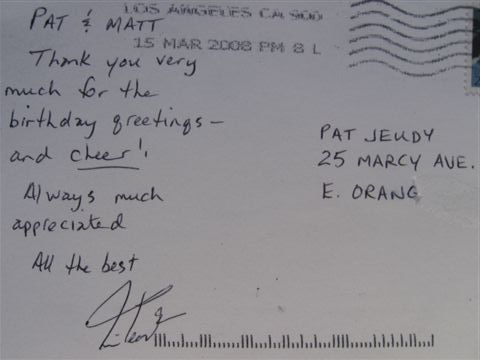 PAT & MATT
Thank you very
much for the
birthday greetings –
and cheer!
Always much
appreciated
All the best
LOS ANGELES CA 900
15 MAR 2008 PM 8 L
PAT JEUDY
25 MARCY AVE.
E. ORANG